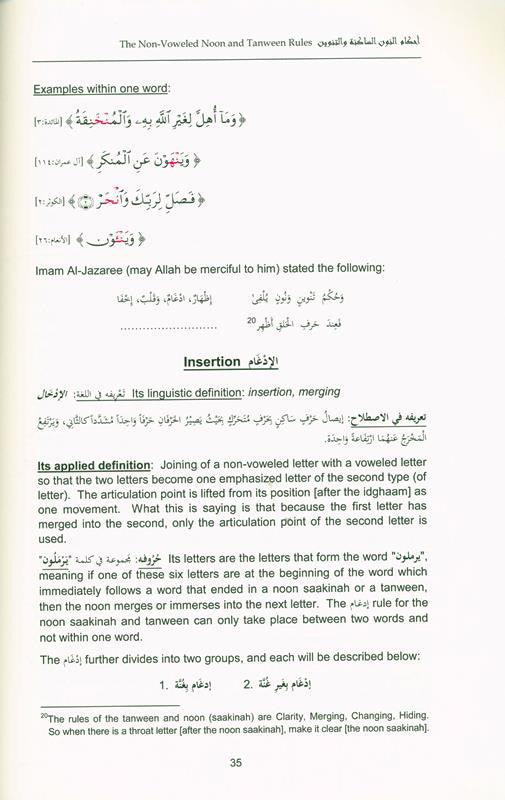 The Non-Voweled Noon and Tanween Rules أحكام النون الساكنة والتنوين
Examples within one word:
﴿ وَمَآ أُهِلَّ لِغَيْرِ ٱللَّهِ بِهِۦ وَٱلْمُنْخَنِقَةُ ﴾ [المائدة:٣]
﴿ وَيَنْهَوْنَ عَنِ ٱلْمُنكَرِ ﴾ [آل عمران:١١٤]
﴿ فَصَلِّ لِرَبِّكَ وَٱنْحَرْ ۝٢ ﴾ [الكوثر:٢]
﴿ وَيَنْـَٔوْنَ ﴾ [الأنعام:٢٦]
Imam Al-Jazaree (may Allah be merciful to him) stated the following:
وَحُكْمُ تَنْوِينٍ وَنُونٍ يُلْفَىْ إِظْهَارٌ، ادْغَامٌ، وَقَلْبٌ، إِخْفَا
فَعِندَ حَرْفِ الْحَلْقِ أَظْهِرْ 20 ........................
Insertion الإِدْغَام
تَعْرِيفه في اللغة: الإِدْخَال Its linguistic definition: insertion, merging
تعريفه في الاصْطِلَاحِ: إِيصَالُ حَرْفٍ سَاكِنٍ بِحَرْفٍ مُتَحَرِّكٍ بِحَيْثُ يَصِيْرُ الحَرْفَانِ حَرْفًا وَاحِدَاً مُشَدَّدَاً كالثَّانِي، وَيَرْتَفِعُ
المَخْرَجُ عَنْهُمَا ارْتِفَاعَةً وَاحِدَة.
Its applied definition: Joining of a non-voweled letter with a voweled letter
so that the two letters become one emphasized letter of the second type (of
letter). The articulation point is lifted from its position [after the idghaam] as
one movement. What this is saying is that because the first letter has
merged into the second, only the articulation point of the second letter is
used.
حُرُوفه: مجموعة في كلمة "يَرْمَلُون" Its letters are the letters that form the word "يرملون",
meaning if one of these six letters are at the beginning of the word which
immediately follows a word that ended in a noon saakinah or a tanween,
then the noon merges or immerses into the next letter. The إدغام rule for the
noon saakinah and tanween can only take place between two words and
not within one word.
The إِدْغَام further divides into two groups, and each will be described below:
1. إدغَام بِغُنَّة 2. إدْغَام بِغَيرِ غُنَّة
20The rules of the tanween and noon (saakinah) are Clarity, Merging, Changing, Hiding.
So when there is a throat letter [after the noon saakinah], make it clear [the noon saakinah].
35